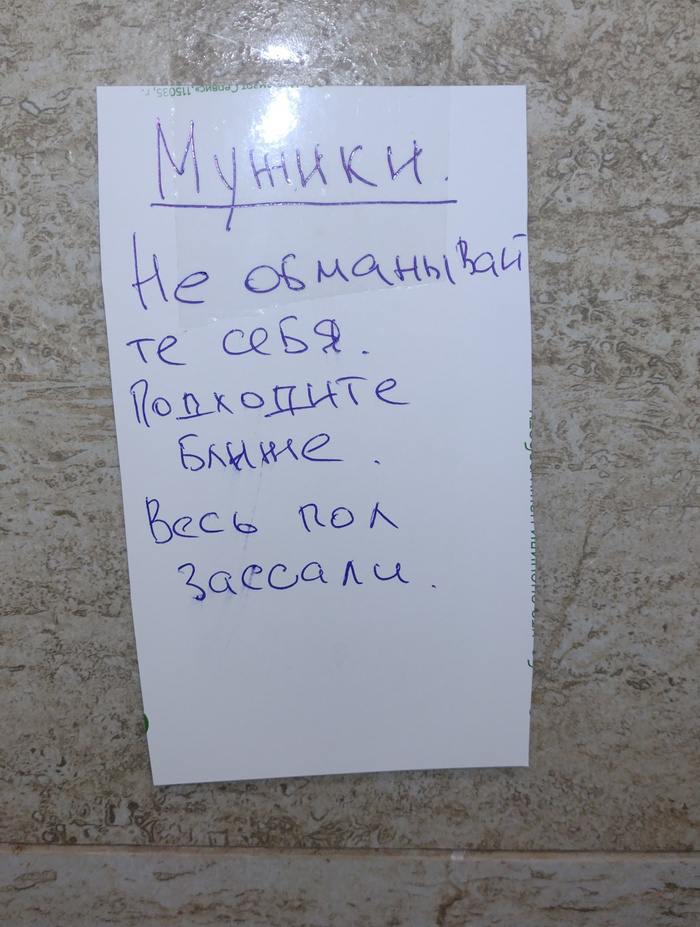 Мужики.
Не обманывай
те себя.
Подходите
ближе.
Весь пол
зассали.